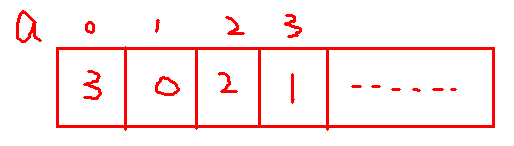 a 0 1 2 3
3 0 2 1 ------